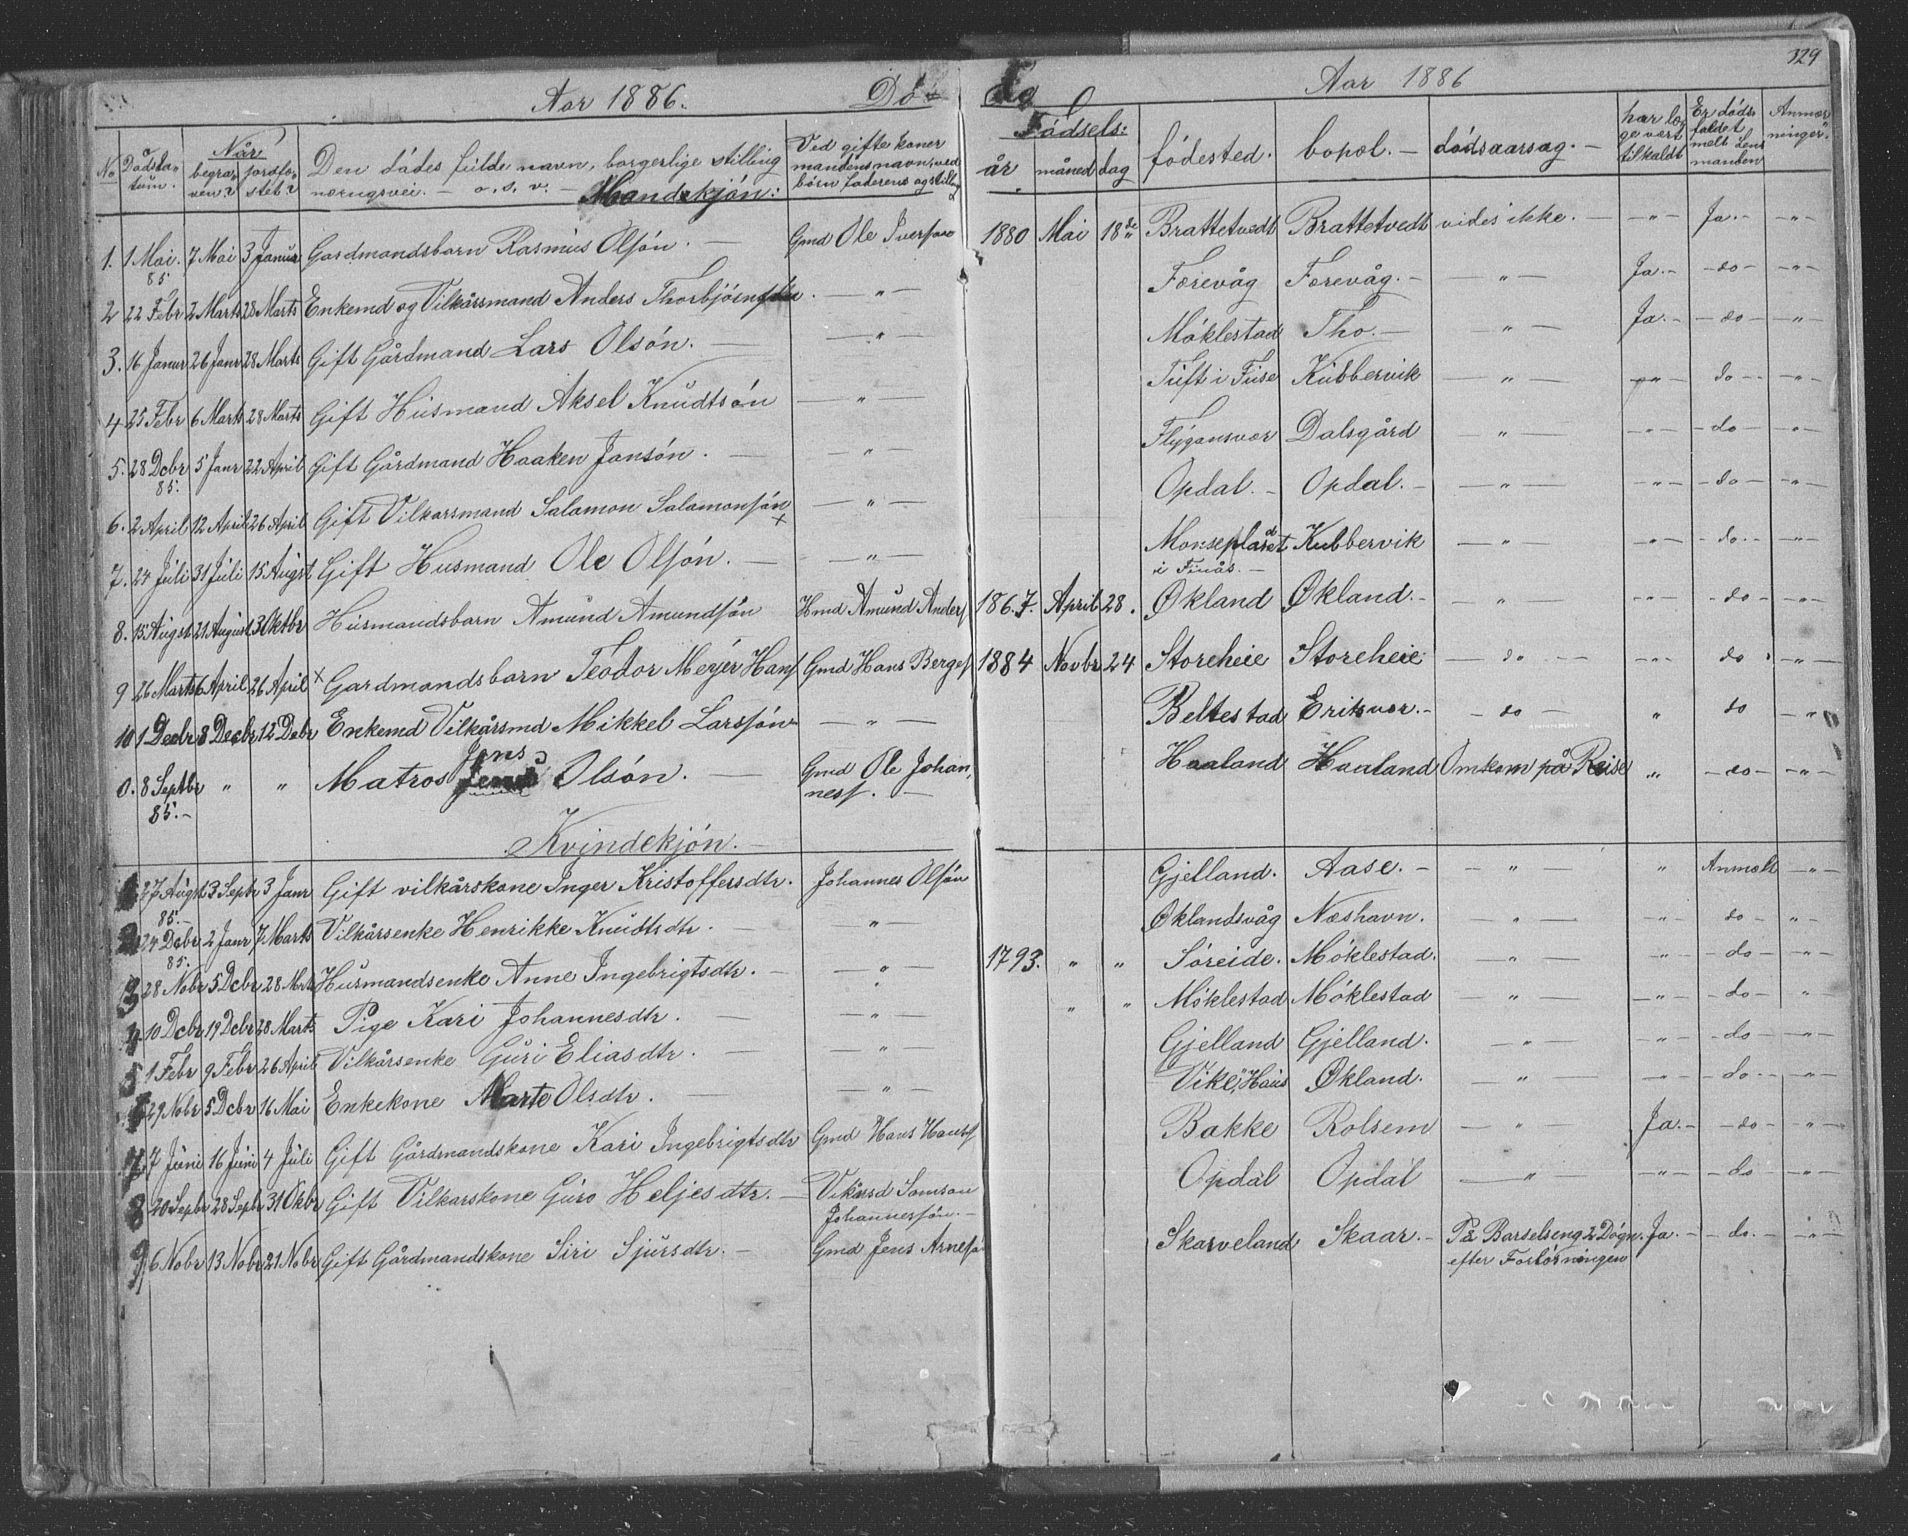 329
Aar 1886. Dö- de Aar 1886
No Dödsda-tum. Når begra-ven? jordfæ-stet? Den dödes fulde navn, borgerlige stilling næringsvei. - o. s. v. - Ved gifte koner mandens navn, ved börn faderens og stilling Födsels: år måned dag födested. bopæl. - dödsaarsag. - har læ-ge vært tilkaldt Er döds faldet meldt Lens manden Anmær-ninger.
Mandskjön:
1. 1 Mai. 7 Mai 3 Januar Gardmandsbarn Rasmus Olsön. - Gmd Ole Iverson 1880 Mai 18de Brattetvedt Brattetvedt vides ikke. - -"- Ja. - -"-
85
2 22 Febr 2 Marts 28 Marts Enkemd og Vilkårsmand Anders Thorbjörnsön. -"- Færevåg Færevåg. - -"- Ja. - - do - -"-
3. 16 Januar 26 Janr 28 Marts Gift Gårdmand Lars Olsön. - -"- Möklestad Tho. - -"- Ja. - - do - -"-
4 25 Febr 6 Marts 28 Marts Gift Husmand Aksel Knudtsön -"- Tuft i Fuse Kubbervik -"- -"- do - -"-
5. 28 Dcbr 5 Janr 22 April Gift Gårdmand Haaken Jansön. - -"- Flygansvær Dalsgård -"- -"- - do - -"-
85.
6. 2 April 12 April 26 April Gift Vilkarsmand Salamon Salamonsön -"- Opdal. - Opdal. - -"- -"- - do - -"-
7. 24 Juli 31 Juli 15 Augst Gift Husmand Ole Olsön. - -"- Monseplaset Kubbervik -"- -"- - do - -"-
i Finås. -
8. 15 Augst 21 August 3 Oktbr Husmandsbarn Amund Amundsön Hmd Amund Anders 1867. April 28. Økland Økland. - -"- -"- - do - -"-
9 26 Marts 6 April 26 April × Gardmandsbarn Teodor Meyer Hans Gmd Hans Berges 1884 Novbr 24 Storeheie Storeheie - do - -"- do -"-
10 1 Decbr 8 Decbr 12 Debr Enkemd Vilkårsmd Mikkel Larssön -"- Beltestad Eriksvær. - - do - " do -"-
Jens
0. 8 Septbr " " Matros Olsön. - Gmd Ole Johan, Haaland Haaland Omkom på Reise " - do - -"-
85. - ness. -
Kvindekjön. -
27 Augst 3 Septr 3 Janr Gift vilkårskone Inger Kristoffersdtr. Johannes Olsön Gjelland. Aase. - -"- " Anmeldt -"-
85. -
2 24 Dcbr 2 Janr 7 Marts Vilkårsenke Henrikke Knudtsdtr. - -"- Øklandsvåg Næshavn. -"- -"- do - -"-
85.
3 28 Nobr 5 Dcbr 28 Marts Husmandsenke Anne Ingebrigtsdtr. - -"- 1793. " " Söreide. Möklestad. -"- -"- - do - -"-
4 10 Dcbr 19 Dcbr 28 Marts Pige Kari Johannesdtr. - -"- " " Möklestad Möklestad -"- -"- - do - "
5 1 Febr 9 Febr 26 April Vilkårsenke Guri Eliasdtr. - -"- Gjelland Gjelland. -"- -"- - do - -"-
29 Nobr 5 Dcbr 16 Mai Enkekone Marte Olsdtr. - -"- Vike, Haus Økland. -"- -"- - do - -"-
7 7 Juni 16 Juni 4 Juli Gift Gårdmandskone Kari Ingebrigtsdtr Gmd Hans Hanss Bakke Rolsem -"- Ja. - - do - -"-
8 20 Sepbr 28 Sepbr 31 Okbr Gift Vilkarskone Guro Heljesdtr. - Vikårsd Samson Opdal Opdal -"- -"- - do -"-
Johannessön. -
9 6 Nobr 13 Nobr 21 Nobr Gift Gårdmandskone Siri Sjursdtr. - Gmd Jens Arnesö Skarveland Skaar. - På Barselseng 2 Dögn Ja. - - do. - -"-
efter Forlösningen